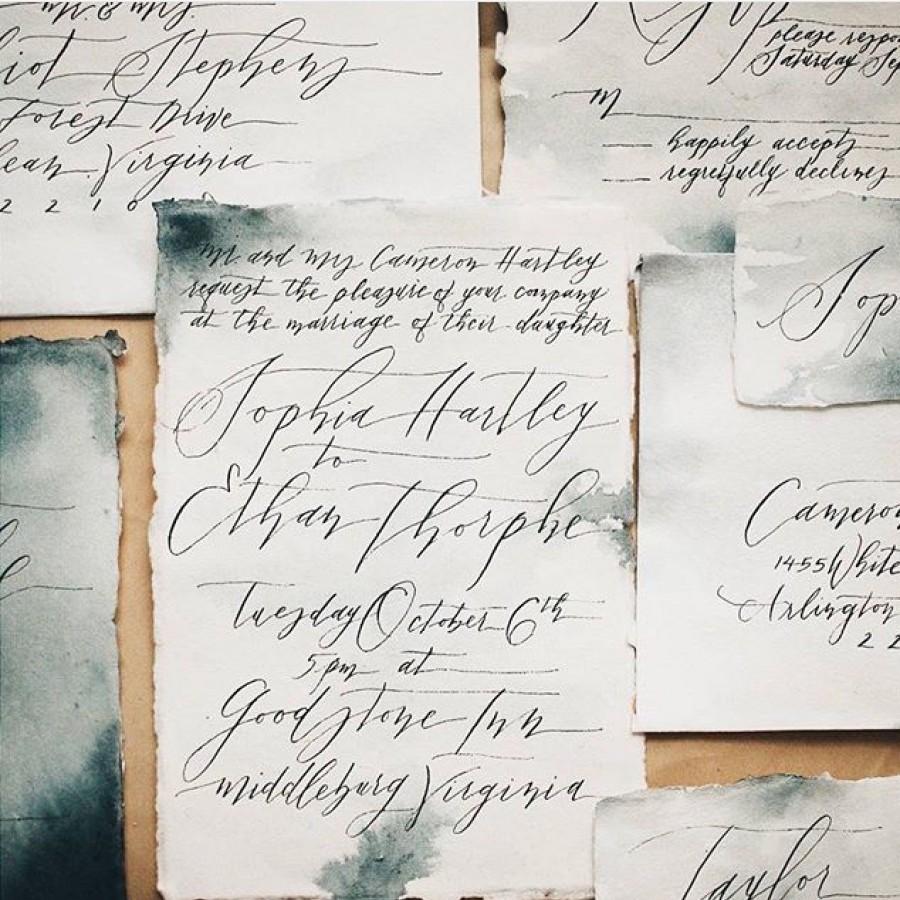 mr. & mrs.
iot Stephens
Forest Drive
lean Virginia
2 2 1 0
RSVP
please respo
Saturday Sep
M
happily accepts
regretfully declines
mr and mrs Cameron Hartley
request the pleasure of your company
at the marriage of their daughter
Sophia Hartley
to
Ethan Thorphe
Tuesday October 6th
5pm at
Goodstone Inn
middleburg Virginia
Sop
Cameron
1455 White
Arlington
2 2
Taylor